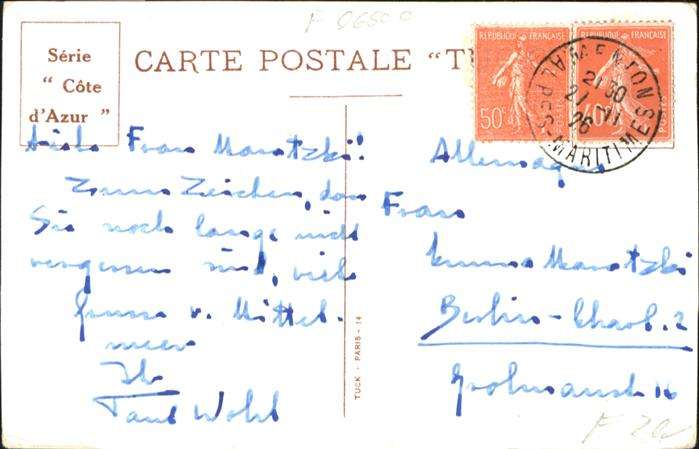 F 06500
Série
" Côte
d'Azur "
CARTE POSTALE "T
RÉPUBLIQUE FRANÇAISE
RÉPUBLIQUE FRANÇAISE
50c
40c
MENTON
21 30
21 VI
26
ALPES-MARITIMES
Frau Maratzki!
Zum Zeichen, dass
Sie noch lange nicht
vergessen sind, viele
Grüsse v. Mittel-
meer
Ihr
Paul Wohl
TUCK - PARIS - 14
Allemagne
Frau
Maratzki
Berlin - Charl. 2
Grolmanstr. 16